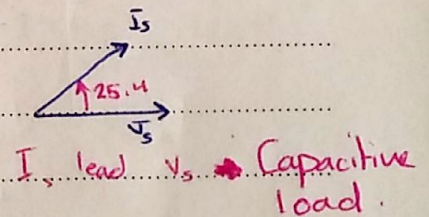 Is
25.4
Vs
Is lead Vs → Capacitive
load.